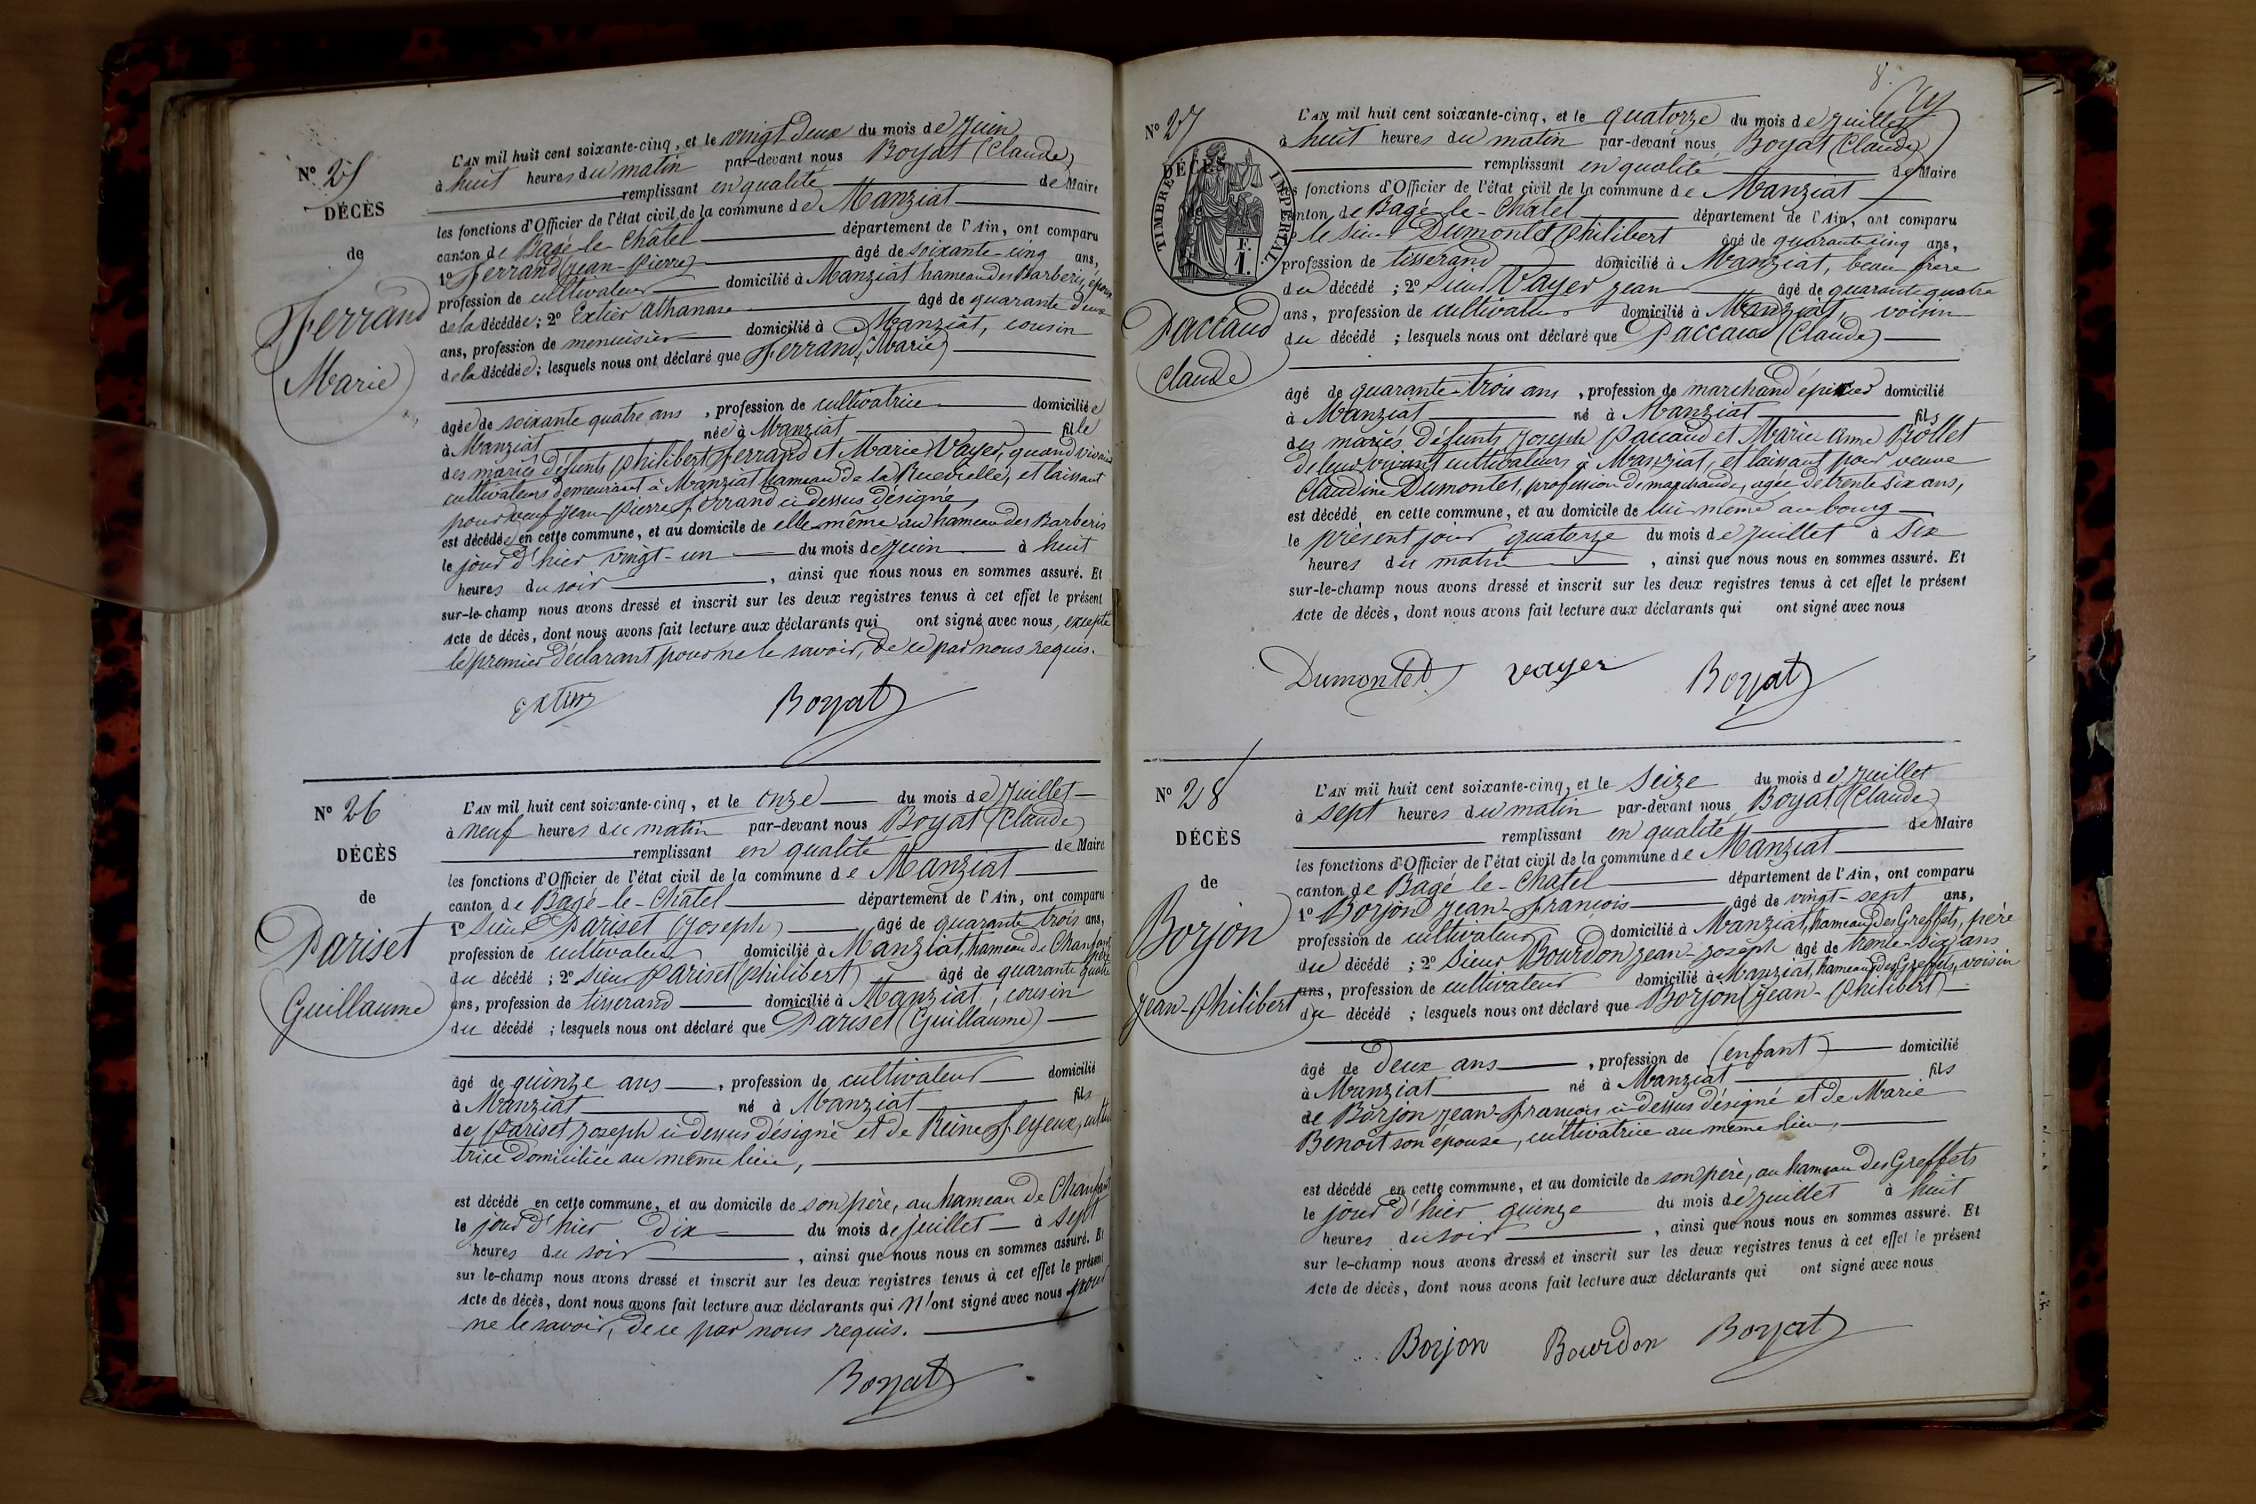 N° 25
DÉCÈS
de
Ferrand
(Marie)
L'AN mil huit cent soixante-cinq, et le vingt deux du mois de Juin
à huit heures du matin par-devant nous Boyat (Claude)
remplissant en qualité de Maire
les fonctions d'Officier de l'état civil de la commune de Manziat
canton de Bagé-le-Châtel département de l'Ain, ont comparu
1° Ferrand (jean-Pierre) âgé de soixante-cinq ans,
profession de cultivateur domicilié à Manziat hameau des Barberis, époux
de la décédée; 2° Extier Athanase âgé de quarante deux
ans, profession de menuisier domicilié à Manziat, cousin
de la décédée; lesquels nous ont déclaré que Ferrand (Marie)
âgée de soixante quatre ans, profession de cultivatrice domiciliée
à Manziat née à Manziat fille
des mariés défunts Philibert Ferrand et Marie Vayer, quand vivaient
cultivateurs demeurant à Manziat hameau de la Ruevielle, et laissant
pour veuf Jean-Pierre Ferrand ci-dessus désigné,
est décédée en cette commune, et au domicile de elle même au hameau des Barberis
le jour d'hier vingt-un du mois de Juin à huit
heures du soir, ainsi que nous nous en sommes assuré. Et
sur-le-champ nous avons dressé et inscrit sur les deux registres tenus à cet effet le présent
Acte de décès, dont nous avons fait lecture aux déclarants qui ont signé avec nous, excepté
le premier déclarant pour ne le savoir, de ce par nous requis.
Extier Boyat
N° 26
DÉCÈS
de
Pariset
Guillaume
L'AN mil huit cent soixante-cinq, et le onze du mois de Juillet
à neuf heures du matin par-devant nous Boyat (Claude)
remplissant en qualité de Maire
les fonctions d'Officier de l'état civil de la commune de Manziat
canton de Bagé-le-Châtel département de l'Ain, ont comparu
1° Sieur Pariset (Joseph) âgé de quarante trois ans,
profession de cultivateur domicilié à Manziat, hameau de Chanfant, père
du décédé ; 2° Sieur Pariset (Philibert) âgé de quarante quatre
ans, profession de tisserand domicilié à Manziat, cousin
du décédé ; lesquels nous ont déclaré que Pariset (Guillaume)
âgé de quinze ans, profession de cultivateur domicilié
à Manziat né à Manziat fils
de Pariset Joseph ci-dessus désigné et de Reine Feyeux, cultiva
trice domiciliée au même lieu,
est décédé en cette commune, et au domicile de son père, au hameau de Chanfant
le jour d'hier dix du mois de juillet à sept
heures du soir, ainsi que nous nous en sommes assuré. Et
sur le-champ nous avons dressé et inscrit sur les deux registres tenus à cet effet le présent
Acte de décès, dont nous avons fait lecture aux déclarants qui n'ont signé avec nous pour
ne le savoir, de ce par nous requis.
Boyat
8.
N° 27
DÉCÈS
TIMBRE IMPERIAL.
F.
1.
Paccaud
Claude
L'AN mil huit cent soixante-cinq, et le quatorze du mois de juillet
à huit heures du matin par-devant nous Boyat (Claude)
remplissant en qualité de Maire
les fonctions d'Officier de l'état civil de la commune de Manziat
canton de Bagé-le-Châtel département de l'Ain, ont comparu
1° le sieur Dumontet Philibert âgé de quarante cinq ans,
profession de tisserand domicilié à Manziat, beau frère
du décédé ; 2° Sieur Vayer Jean âgé de quarante quatre
ans, profession de cultivateur domicilié à Manziat, voisin
du décédé ; lesquels nous ont déclaré que Paccaud (Claude)
âgé de quarante-trois ans, profession de marchand épicier domicilié
à Manziat né à Manziat fils
des mariés défunts Joseph Paccaud et Marie Anne Bollet
de leur vivant cultivateurs à Manziat, et laissant pour veuve
Claudine Dumontet, profession de marchande, agée de trente six ans,
est décédé en cette commune, et au domicile de lui même au bourg
le présent jour quatorze du mois de juillet à six
heures du matin, ainsi que nous nous en sommes assuré. Et
sur-le-champ nous avons dressé et inscrit sur les deux registres tenus à cet effet le présent
Acte de décès, dont nous avons fait lecture aux déclarants qui ont signé avec nous
Dumontet vayer Boyat
N° 28
DÉCÈS
de
Borjon
Jean-Philibert
L'AN mil huit cent soixante-cinq, et le seize du mois de Juillet
à sept heures du matin par-devant nous Boyat (Claude)
remplissant en qualité de Maire
les fonctions d'Officier de l'état civil de la commune de Manziat
canton de Bagé-le-Chatel département de l'Ain, ont comparu
1° Borjon Jean-François âgé de vingt-sept ans,
profession de cultivateur domicilié à Manziat, hameau des Greffets, père
du décédé ; 2° Sieur Bourdon Jean-Joseph âgé de trente-six ans
ans, profession de cultivateur domicilié à Manziat, hameau des Greffets, voisin
du décédé ; lesquels nous ont déclaré que Borjon (Jean-Philibert)
âgé de deux ans, profession de (enfant) domicilié
à Manziat né à Manziat fils
de Borjon Jean-François ci-dessus désigné et de Marie
Benoit son épouse, cultivatrice au même lieu,
est décédé en cette commune, et au domicile de son père, au hameau des Greffets
le jour d'hier quinze du mois de juillet à huit
heures du soir, ainsi que nous nous en sommes assuré. Et
sur le-champ nous avons dressé et inscrit sur les deux registres tenus à cet effet le présent
Acte de décès, dont nous avons fait lecture aux déclarants qui ont signé avec nous
Borjon Bourdon Boyat